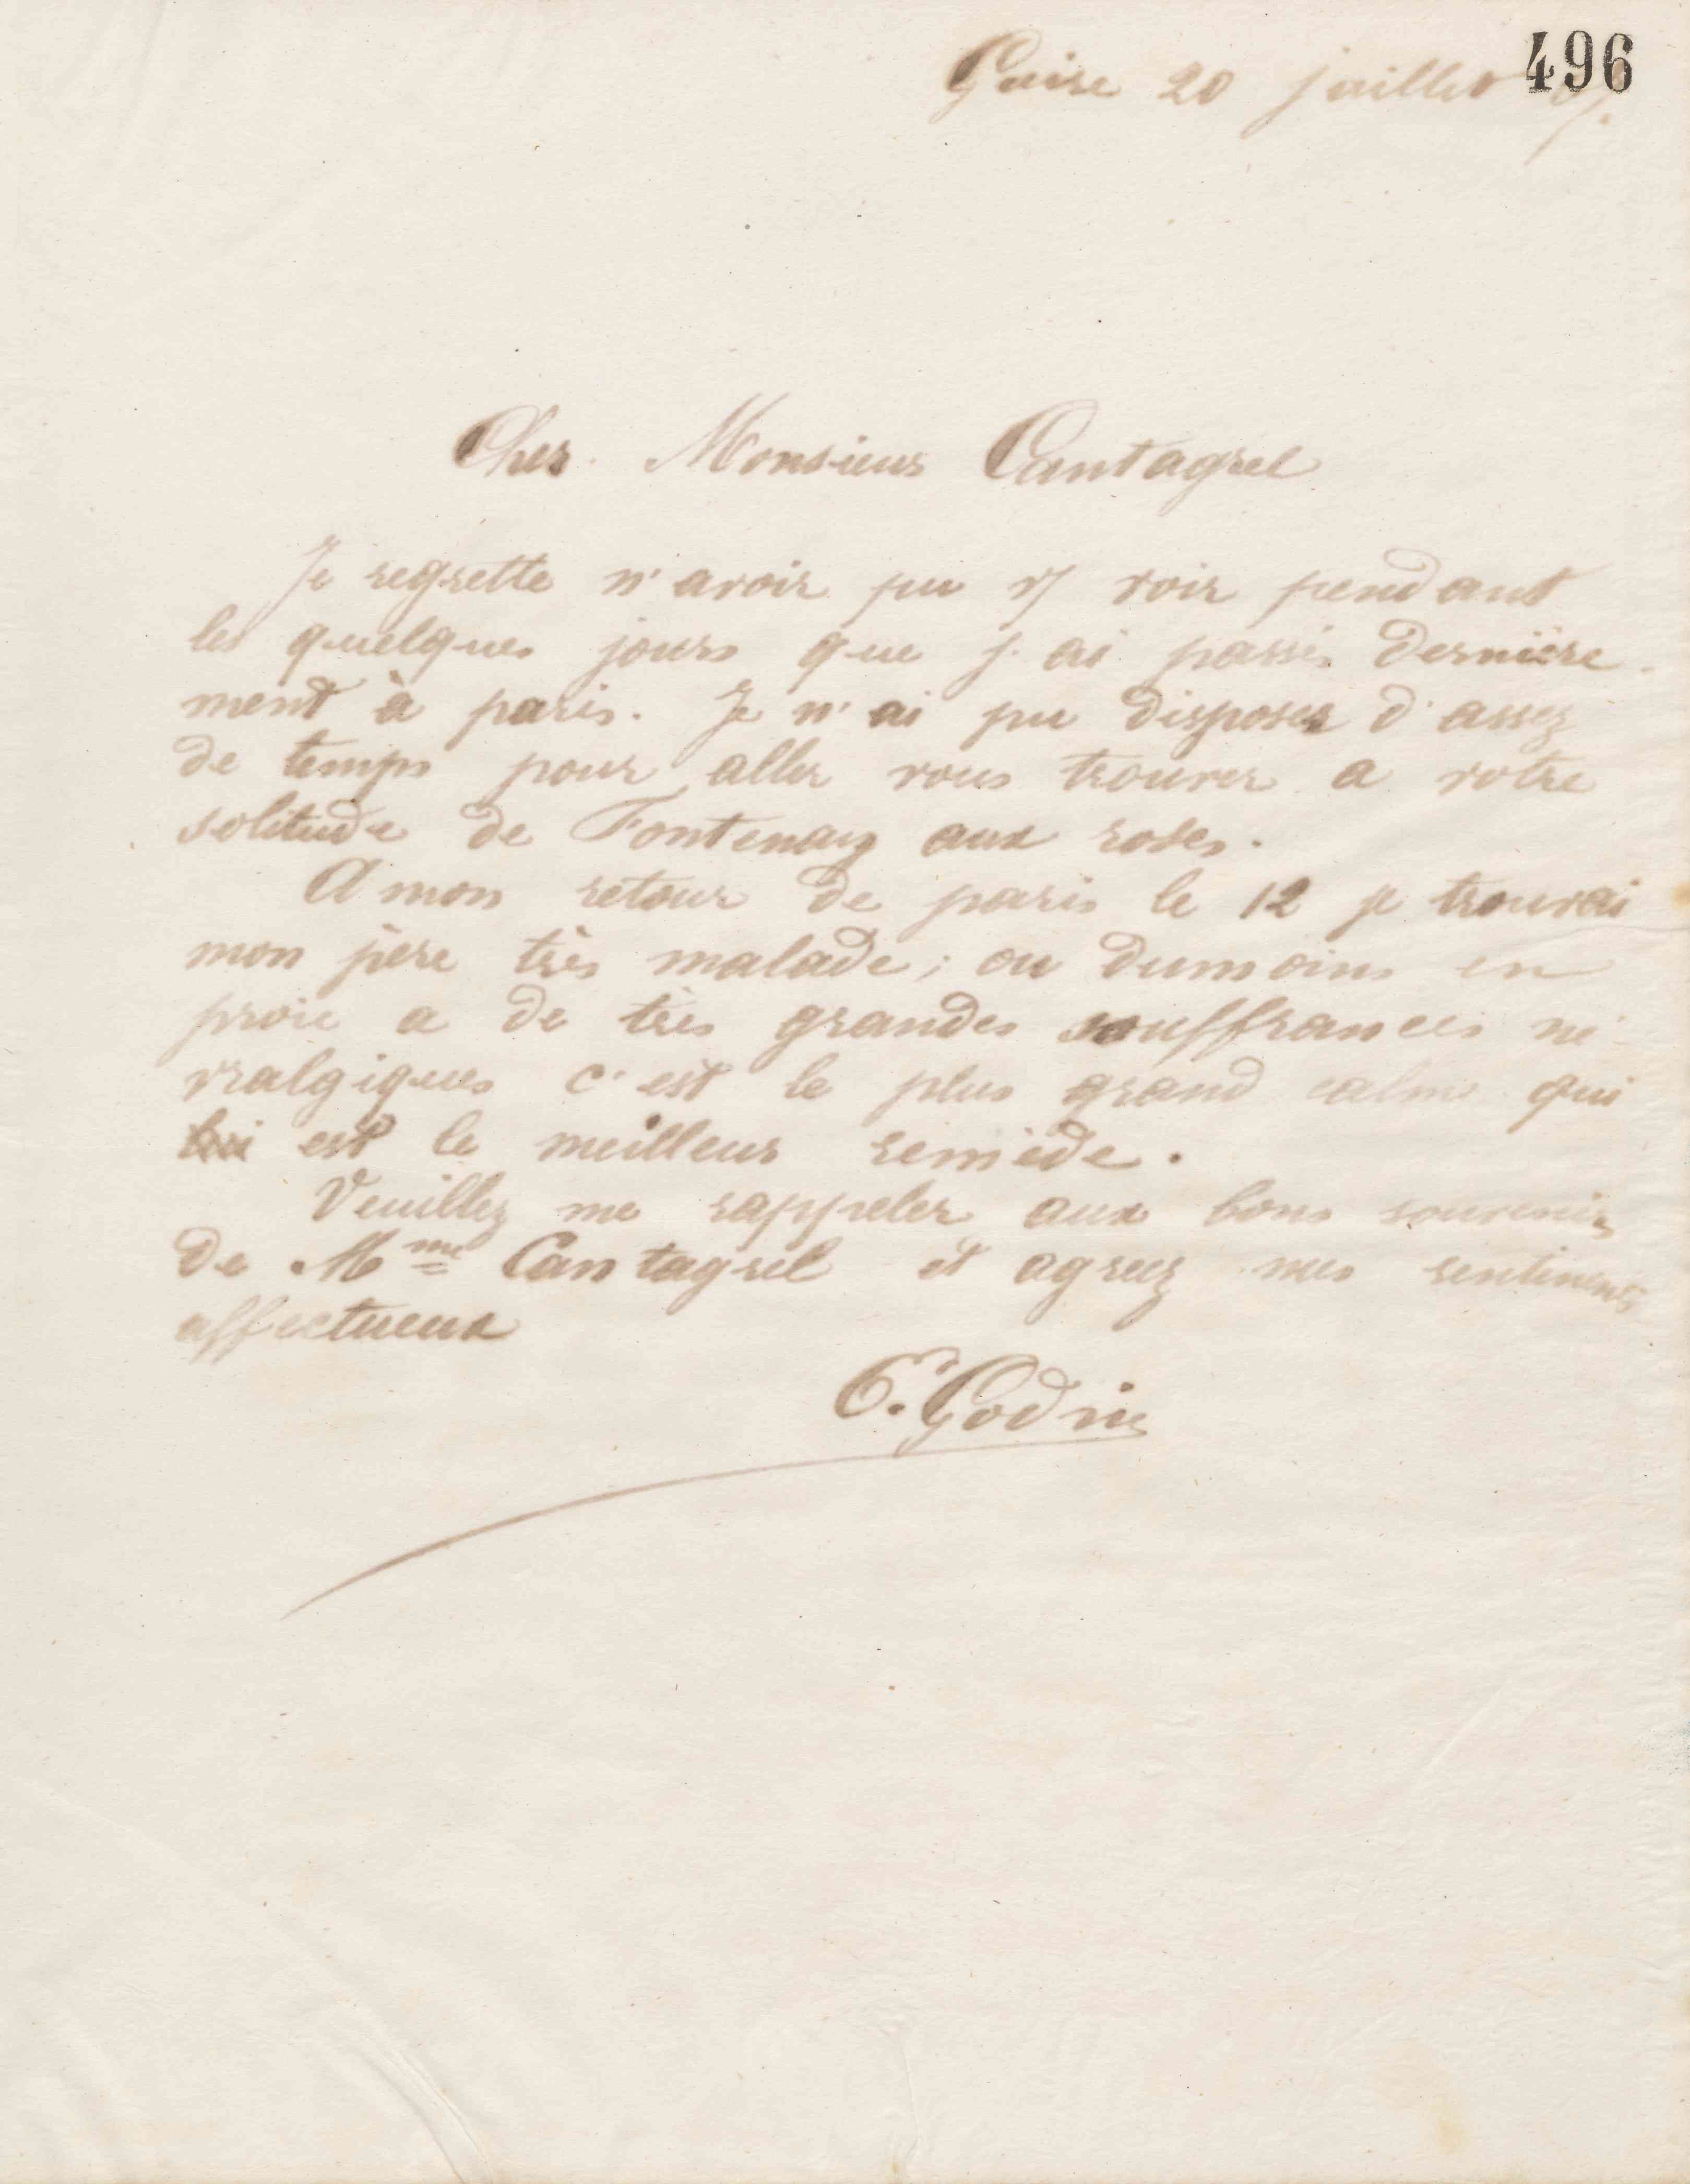 496
Guise 20 juillet
Cher Monsieur Cantagrel
Je regrette n'avoir pu v/ voir pendant
les quelques jours que j'ai passés dernière
ment à paris. Je n'ai pu disposer d'assez
de temps pour aller vous trouver a votre
solitude de Fontenay aux roses.
A mon retour de paris le 12 je trouvai
mon père très malade; ou dumoins en
proie a de très grandes souffrances né
vralgiques c'est le plus grand calme qui
lui est le meilleur remède.
Veuillez me rappeler aux bons souvenirs
de Mme Cantagrel et agréez mes sentiments
affectueux
E. Godin